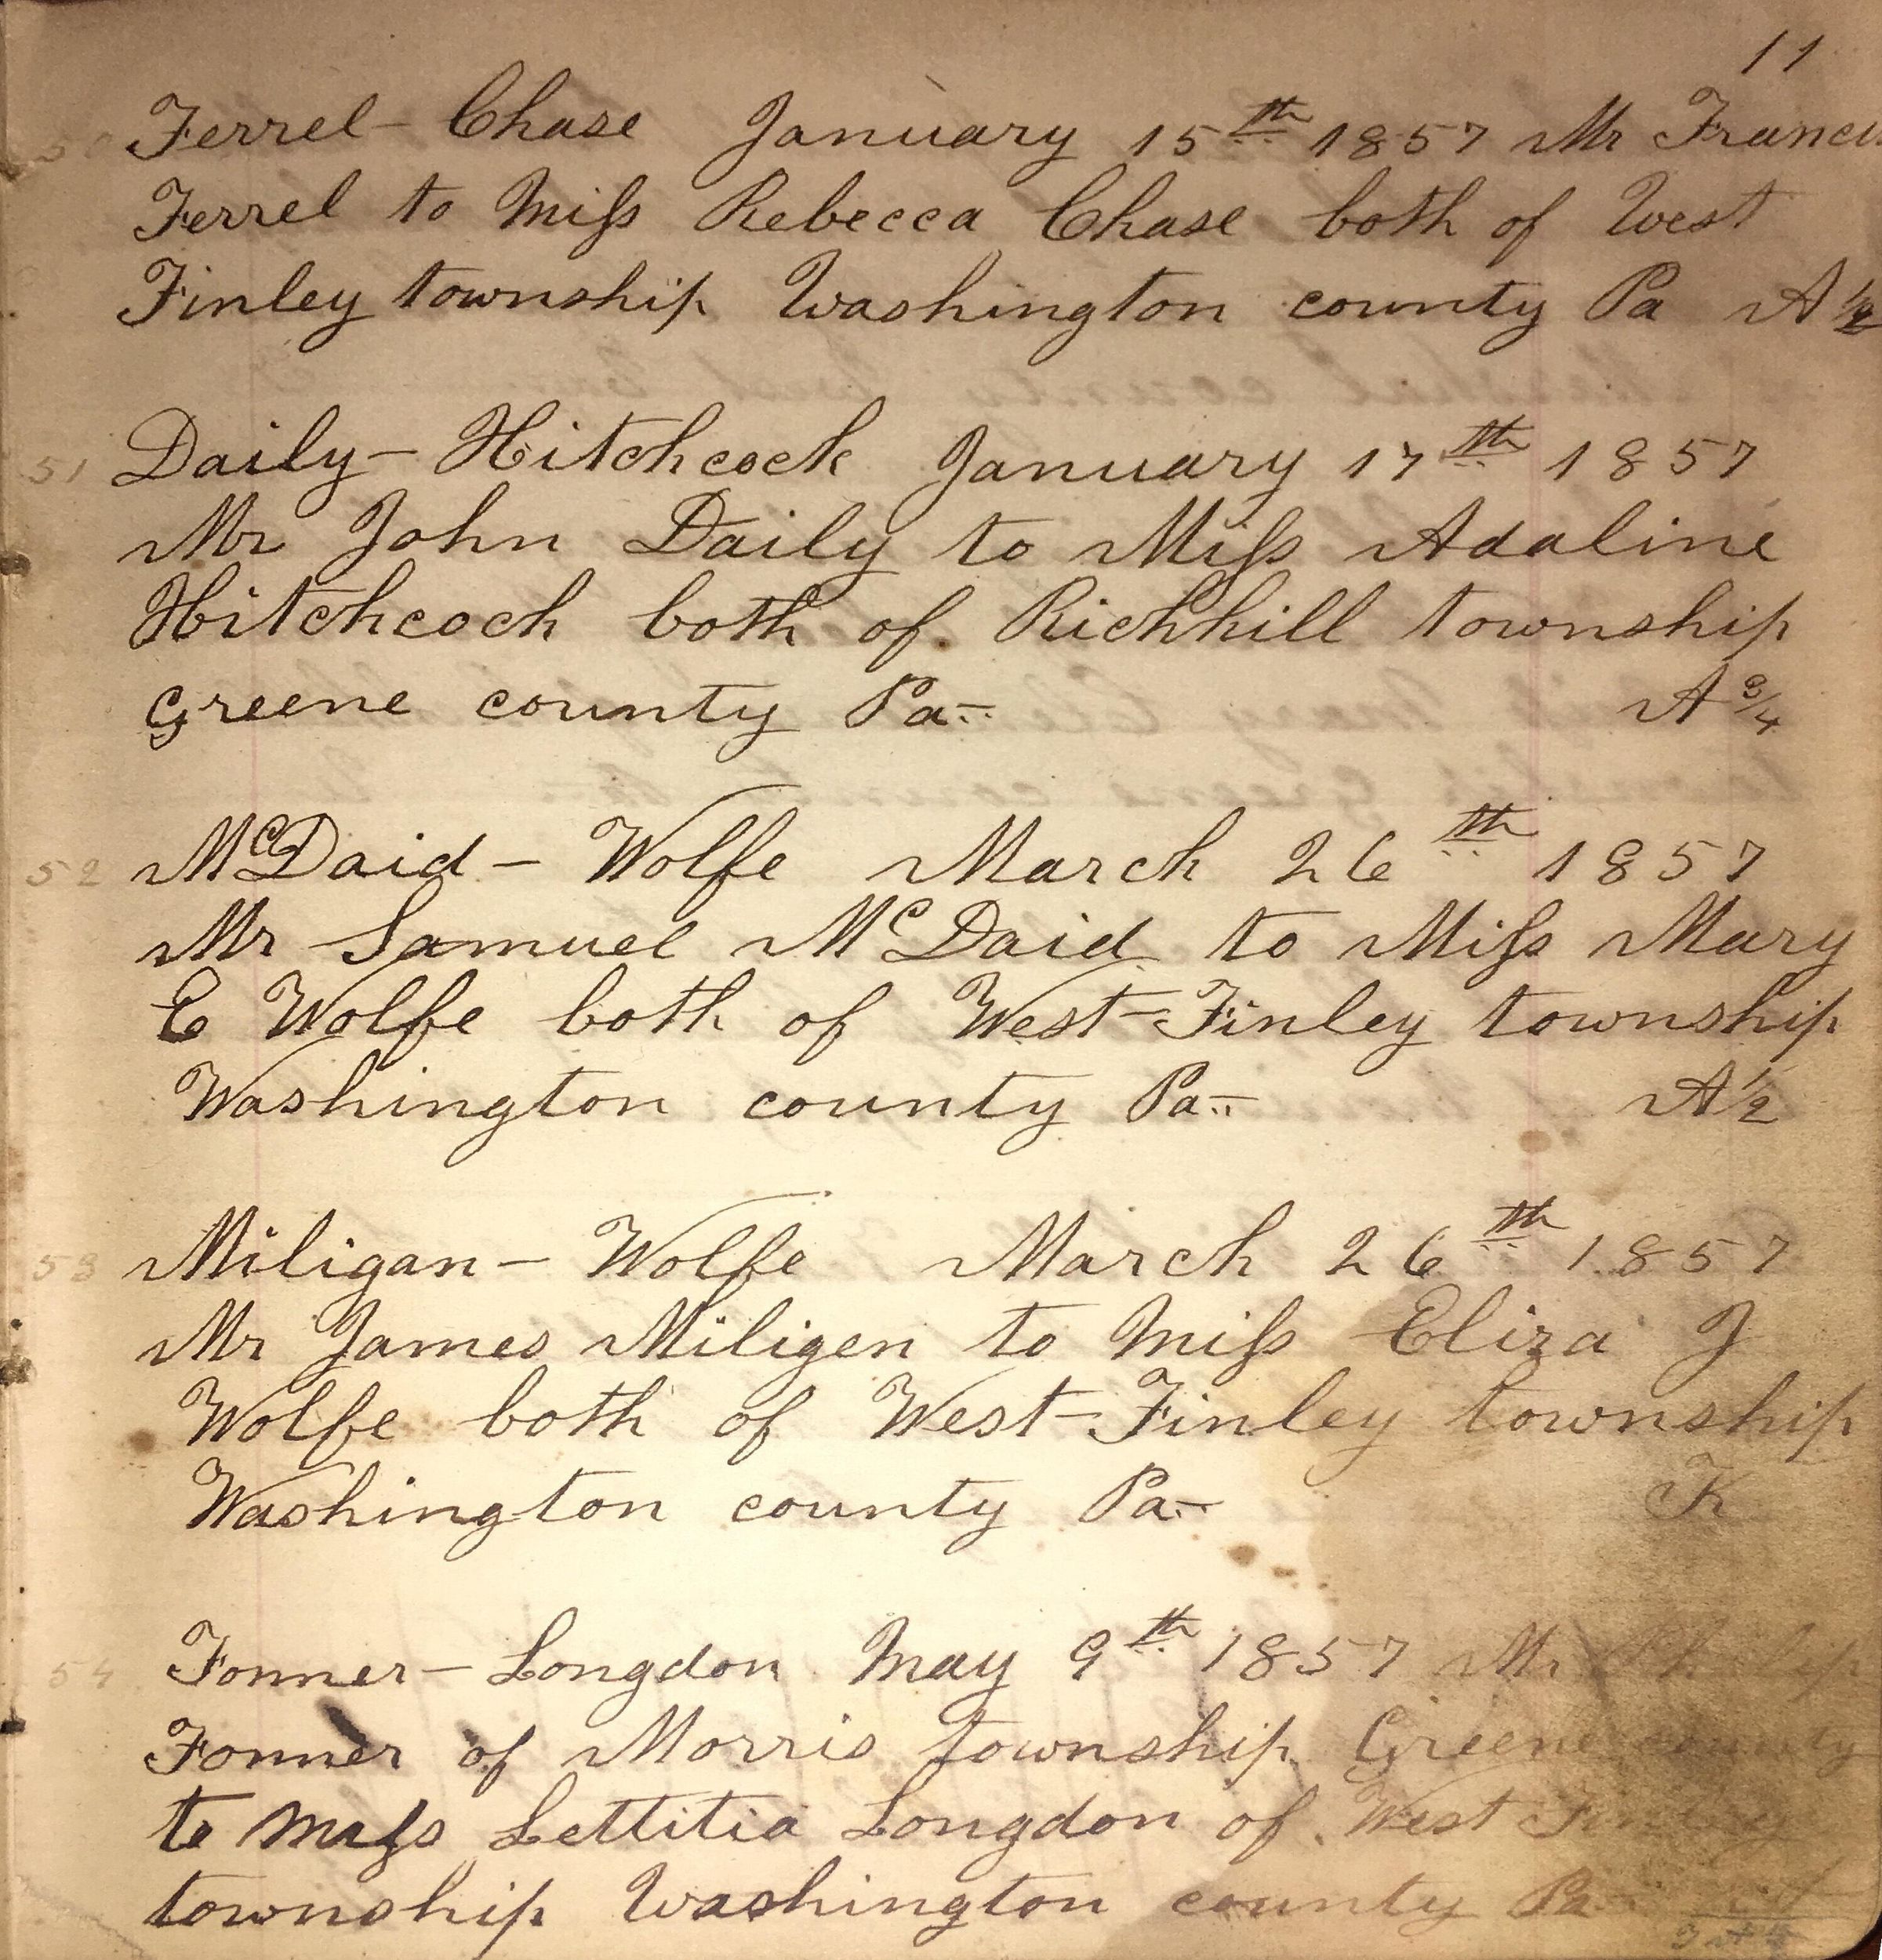 11
50 Ferrel - Chase January 15th 1857 Mr Francis
Ferrel to Miſs Rebecca Chase both of West
Finley township Washington county Pa A 1/2
51 Daily - Hitchcock January 17th 1857
Mr John Daily to Miſs Adaline
Hitchcoch both of Richhill township
Greene county Pa- A 3/4
52 McDaid - Wolfe March 26th 1857
Mr Samuel McDaid to Miſs Mary
E Wolfe both of West-Finley township
Washington county Pa- A 1/2
53 Miligan - Wolfe March 26th 1857
Mr James Miligen to Miſs Eliza J
Wolfe both of West-Finley township
Washington county Pa- K
54 Fonner - Longdon May 9th 1857 Mr
Fonner of Morris township Greene county
to Miſs Lettitia Longdon of West Finley
township Washington county Pa